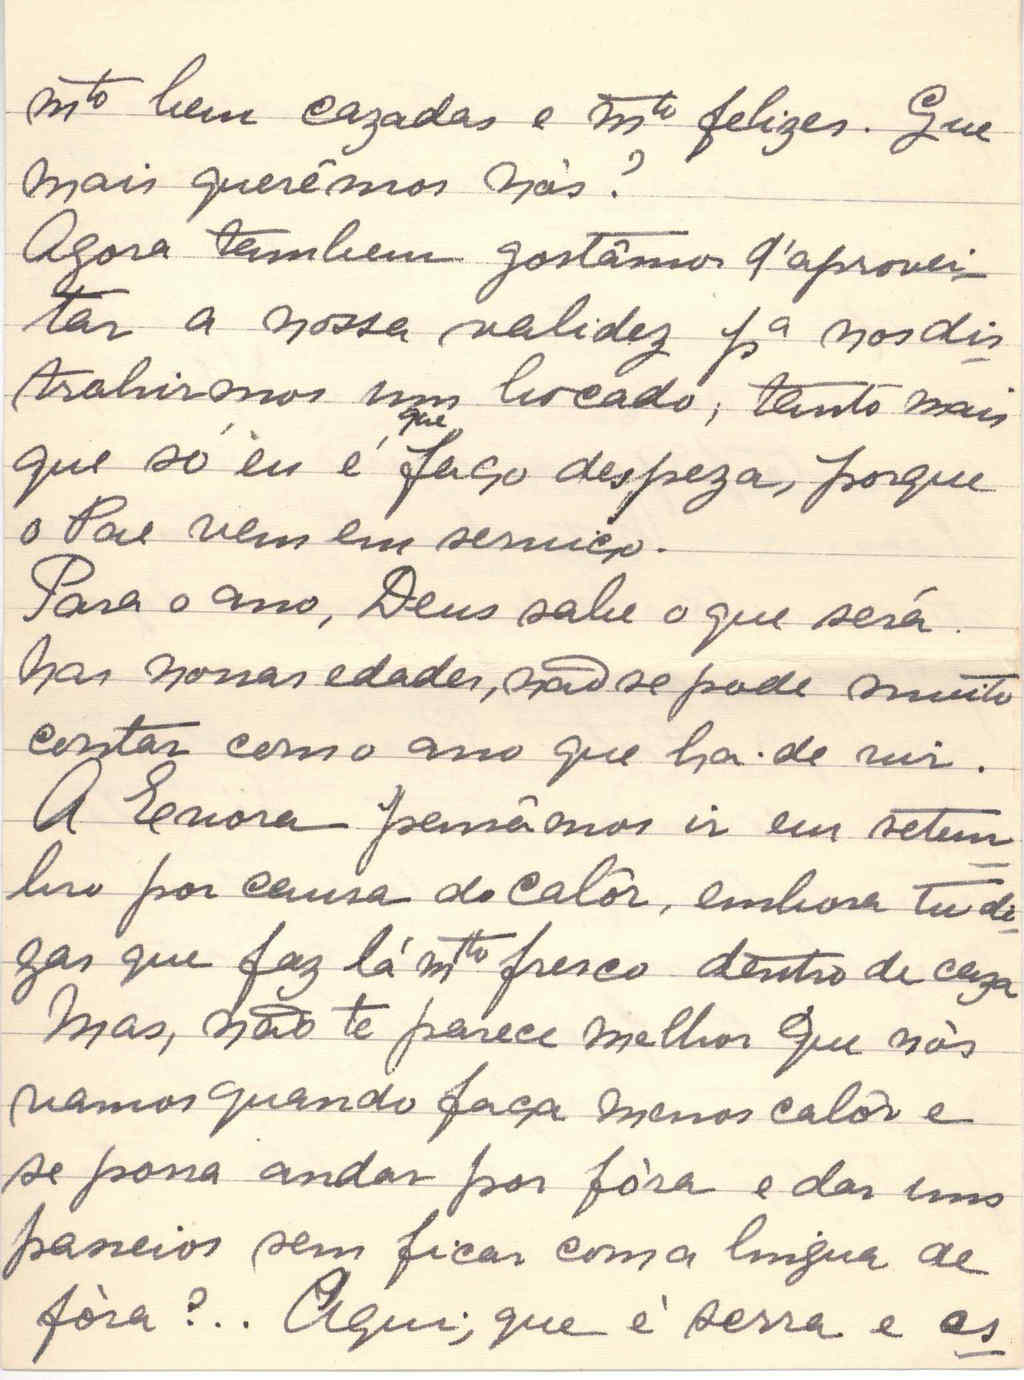 m.to bem cazadas e m.to felizes. Que
mais querêmos nós?
Agora tambem gostâmos d'aprovei-
tar a nossa validez p.a nos dis-
trahirmos um bocado, tanto mais
que só eu é que faço despeza, porque
o Pae vem em serviço.
Para o ano, Deus sabe o que será.
Nas nossas edades, não se pode muito
contar com o ano que ha-de vir.
A Evora pensâmos ir em setem-
bro por causa do calôr, embora tu di-
gas que faz lá m.to fresco dentro de caza
Mas, não te parece melhor que nós
vamos quando faça menos calôr e
se possa andar por fóra e dar uns
passeios sem ficar com a lingua de
fóra?.. Aqui, que é serra e es-